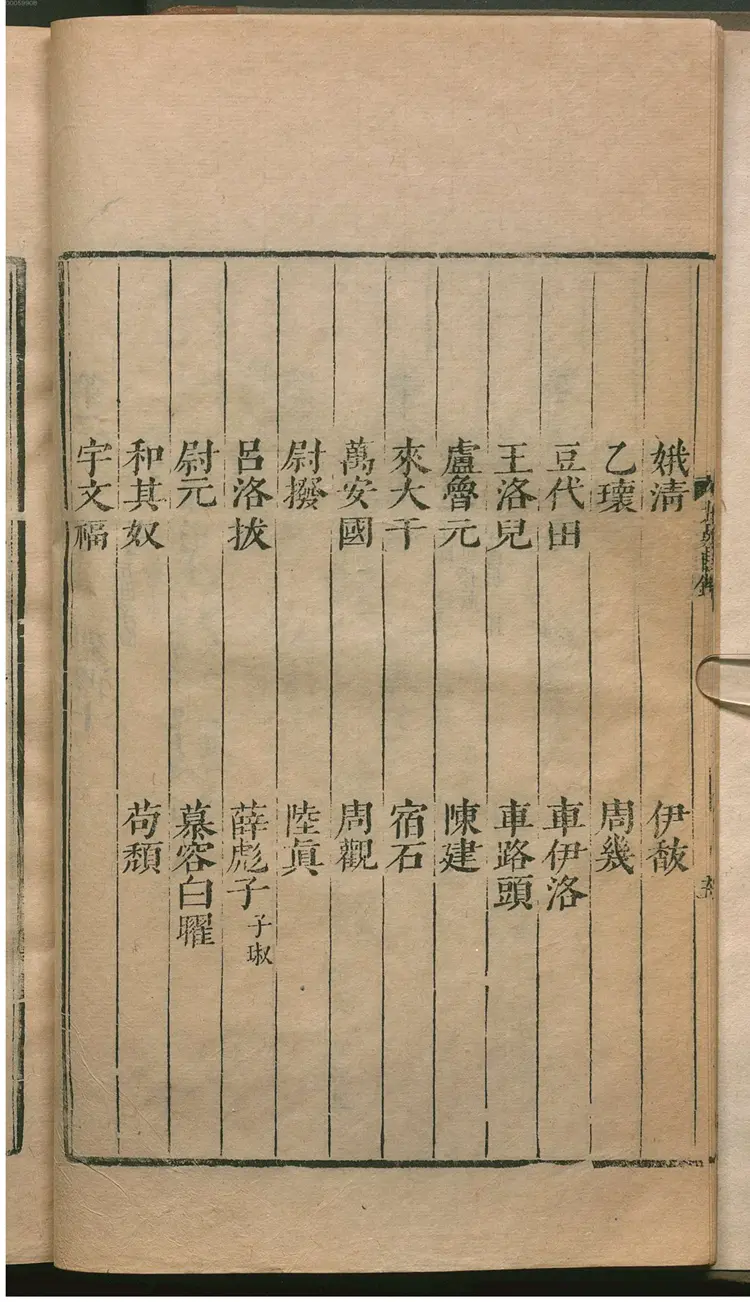 00059908
娥清 伊馛
乙瓌 周幾
豆代田 車伊洛
王洛兒 車路頭
盧魯元 陳建
來大千 宿石
萬安國 周觀
尉撥 陸眞
呂洛拔 薛彪子 子琡
尉元 慕容白曜
和其奴 苟頹
宇文福